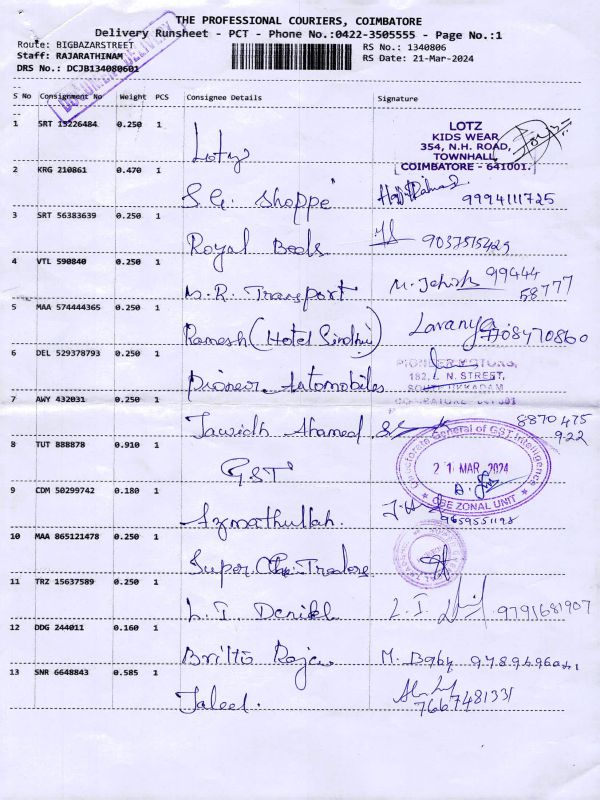 THE PROFESSIONAL COURIERS, COIMBATORE
Delivery Runsheet - PCT - Phone No.:0422-3505555 - Page No.:1
Route: BIGBAZARSTREET RS No.: 1340806
Staff: RAJARATHINAM RS Date: 21-Mar-2024
DRS No.: DCJB134080601
S No Consignment No Weight PCS Consignee Details Signature
1 SRT 15226484 0.250 1 Lotz
LOTZ
KIDS WEAR
354, N.H. ROAD,
TOWNHALL,
COIMBATORE - 641001.
2 KRG 210861 0.470 1 S.G. Shoppe 9994111725
3 SRT 56383639 0.250 1 Royal 9037515429
4 VTL 590840 0.250 1 M.R. Transport 99444
58777
5 MAA 574444365 0.250 1 Ramesh (Hotel Sindhu) Lavanya 7708470860
6 DEL 529378793 0.250 1 Pioneer Automobiles
PIONEER MOTORS,
182, N. STREET,
7 AWY 432031 0.250 1 Jawidh Ahamed 8870475
922
8 TUT 888878 0.910 1 GST
Directorate General of GST Intelligence
21 MAR 2024
CBE ZONAL UNIT
9 CDM 50299742 0.180 1 Azmathullah. 9659551128
10 MAA 865121478 0.250 1 Super Traders
11 TRZ 15637589 0.250 1 L.I. 9791681907
12 DDG 244011 0.160 1 Britto Raja M. Baby
13 SNR 6648843 0.585 1 Jaleel. 7667481331